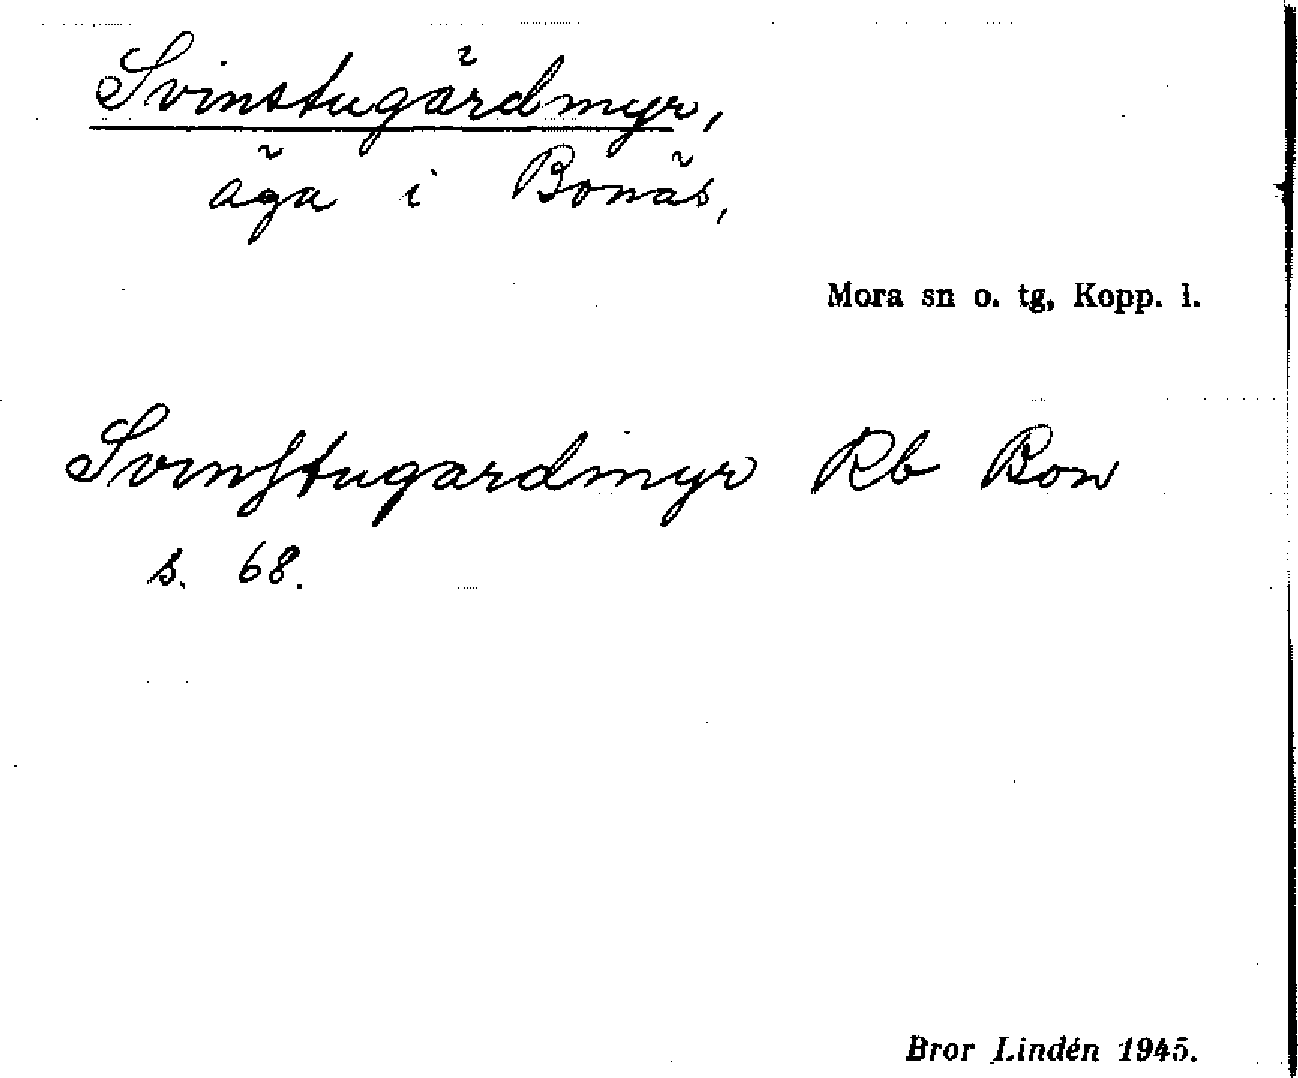 Svinstugärdmyr,
äga i Bonäs,
Mora sn o. tg, Kopp. l.
Svinstugardmyr Rb Bon
s. 68.
Bror Lindén 1945.